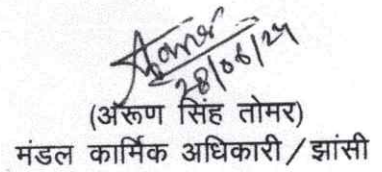 Tomar
28/06/24
(अरूण सिंह तोमर)
मंडल कार्मिक अधिकारी / झांसी